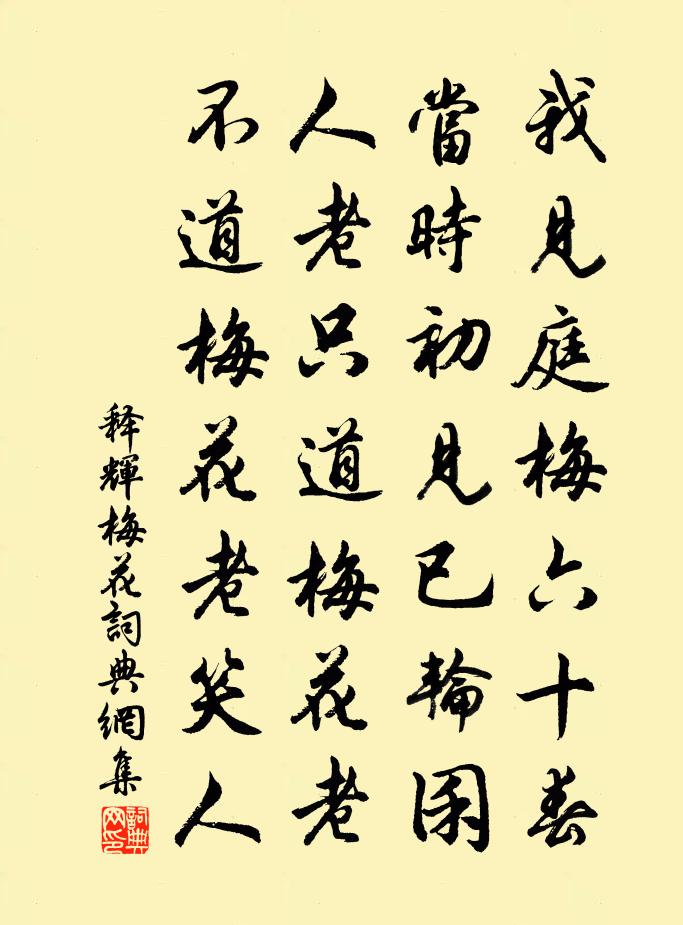 我見庭梅六十春
當時初見已輪囷
人老只道梅花老
不道梅花老笑人
释輝梅花詞典網集
詞典网印